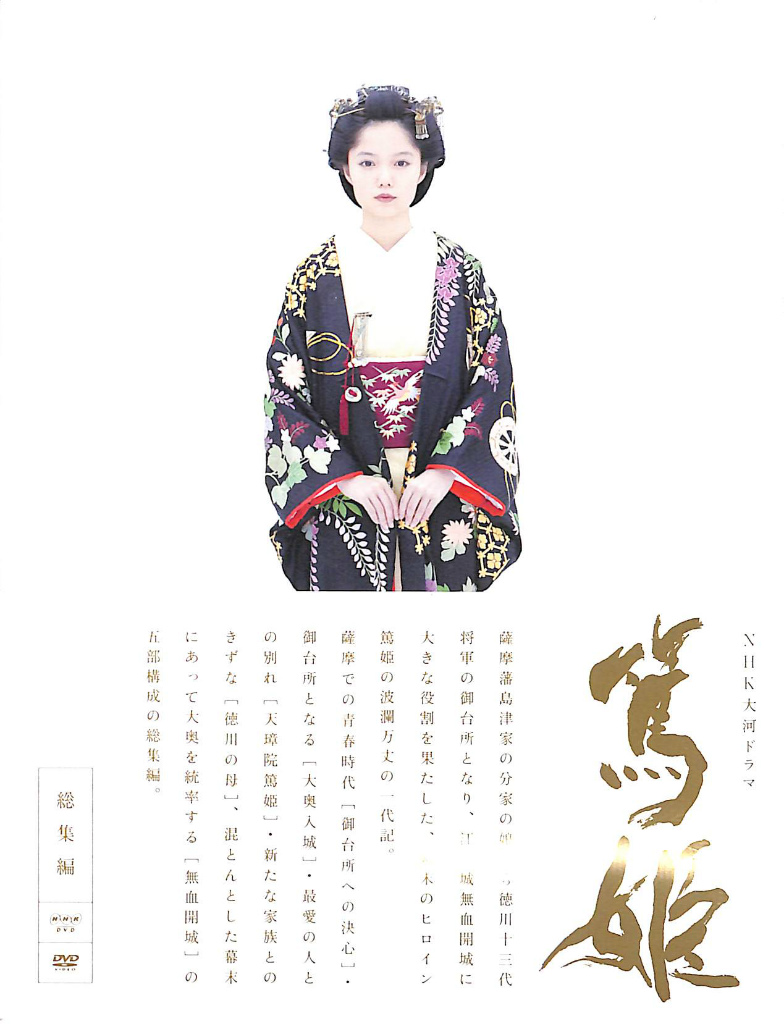 NHK大河ドラマ
篤姫
薩摩藩島津家の分家の娘 っ徳川十三代
将軍の御台所となり、江 城無血開城に
大きな役割を果たした、 末のヒロイン
篤姫の波瀾万丈の一代記。
薩摩での青春時代[御台所への決心]・
御台所となる[大奥入城]・最愛の人と
の別れ[天璋院篤姫]・新たな家族との
きずな[徳川の母]、混とんとした幕末
にあって大奥を統率する[無血開城]の
五部構成の総集編。
総集編
NHK
DVD
DVD
VIDEO